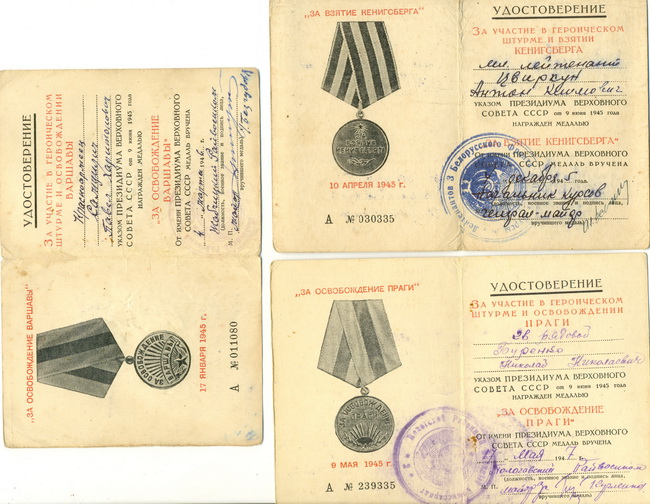 УДОСТОВЕРЕНИЕ
ЗА УЧАСТИЕ В ГЕРОИЧЕСКОМ
ШТУРМЕ И ОСВОБОЖДЕНИИ
ВАРШАВЫ
Павел
УКАЗОМ ПРЕЗИДИУМА ВЕРХОВНОГО
СОВЕТА СССР от 9 июня 1945 года
НАГРАЖДЕН МЕДАЛЬЮ
„ЗА ОСВОБОЖДЕНИЕ
ВАРШАВЫ“
От имени ПРЕЗИДИУМА ВЕРХОВНОГО
СОВЕТА СССР МЕДАЛЬ ВРУЧЕНА
4 марта 1946 г.
М. П.
„ЗА ОСВОБОЖДЕНИЕ ВАРШАВЫ“
ЗА ОСВОБОЖДЕНИЕ ВАРШАВЫ
17 ЯНВАРЯ 1945 г.
А № 011080
„ЗА ВЗЯТИЕ КЕНИГСБЕРГА“
10 АПРЕЛЯ 1945 г.
А № 030335
УДОСТОВЕРЕНИЕ
ЗА УЧАСТИЕ В ГЕРОИЧЕСКОМ
ШТУРМЕ И ВЗЯТИИ
КЕНИГСБЕРГА
мл. лейтенант
Цвиркун
Антон
УКАЗОМ ПРЕЗИДИУМА ВЕРХОВНОГО
СОВЕТА СССР от 9 июня 1945 года
НАГРАЖДЕН МЕДАЛЬЮ
ВЗЯТИЕ КЕНИГСБЕРГА“
От имени ПРЕЗИДИУМА ВЕРХОВНОГО
СОВЕТА СССР МЕДАЛЬ ВРУЧЕНА
декабря 5
Начальник курсов
(должность, военное звание и подпись лица,
генерал-майор
вручившего медаль)
„ЗА ОСВОБОЖДЕНИЕ ПРАГИ“
9 МАЯ 1945 г.
А № 239335
УДОСТОВЕРЕНИЕ
ЗА УЧАСТИЕ В ГЕРОИЧЕСКОМ
ШТУРМЕ И ОСВОБОЖДЕНИИ
ПРАГИ
гв рядовой
Буренко
Николай Николаевич
УКАЗОМ ПРЕЗИДИУМА ВЕРХОВНОГО
СОВЕТА СССР от 9 июня 1945 года
НАГРАЖДЕН МЕДАЛЬЮ
„ЗА ОСВОБОЖДЕНИЕ
ПРАГИ“
ОТ ИМЕНИ ПРЕЗИДИУМА ВЕРХОВНОГО
СОВЕТА СССР МЕДАЛЬ ВРУЧЕНА
17 мая 1947 г.
Райвоенком
(должность, военное звание и подпись лица,
М. П. майор
вручившего медаль)